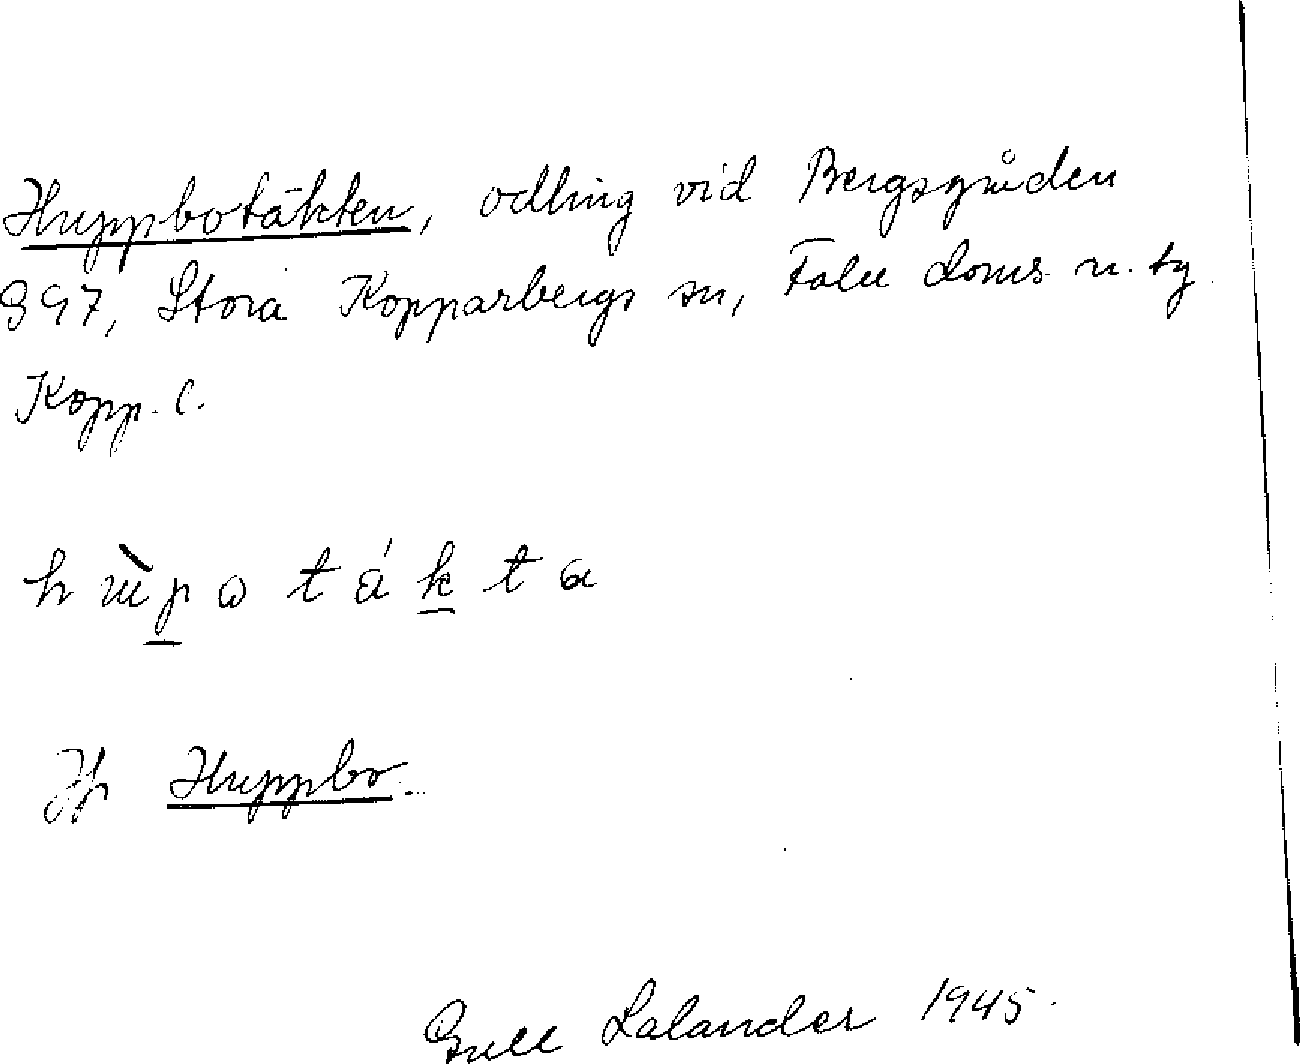 Huppbotäkten, odling vid Bergsgården
397, Stora Kopparbergs sn, Falu doms. n. tg
Kopp. l.
Jfr Huppbo.
Gull Lalander 1945.